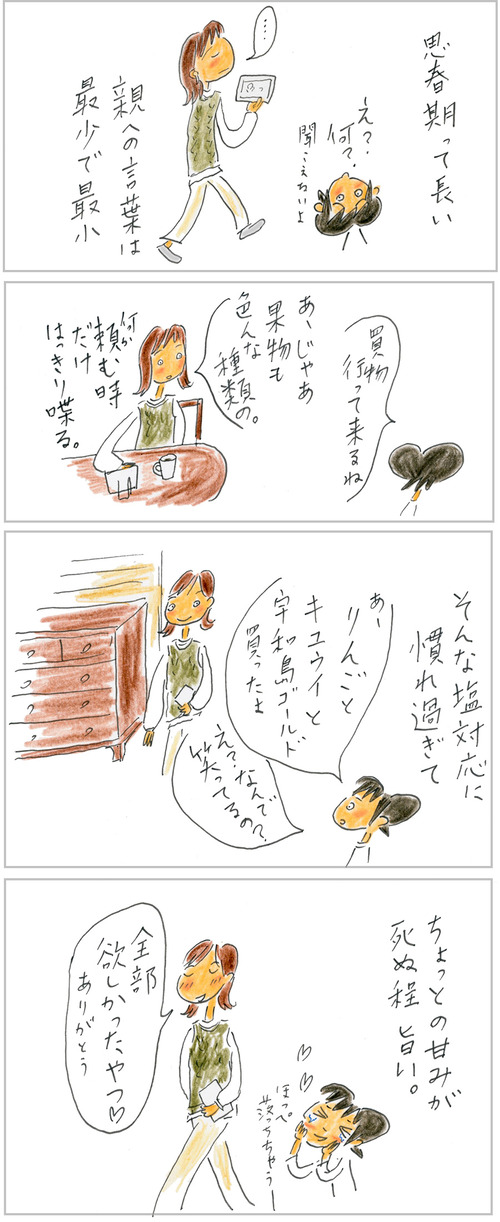 思春期って長い
え？
何？
聞こえないよ
・・・
親への言葉は
最少で最小
買物
行って来るね
あーじゃあ
果物も
色んな
種類の。
何か
頼む時
だけ
はっきり喋る。
そんな塩対応に
慣れ過ぎて
あー
りんごと
キュウイと
宇和島ゴールド
買ったよ
え？なんで？
笑ってるの？
ちょっとの甘みが
死ぬ程 旨い。
♡♡
ほっぺ
落っちゃうー
全部
欲しかったやつ♡
ありがとう